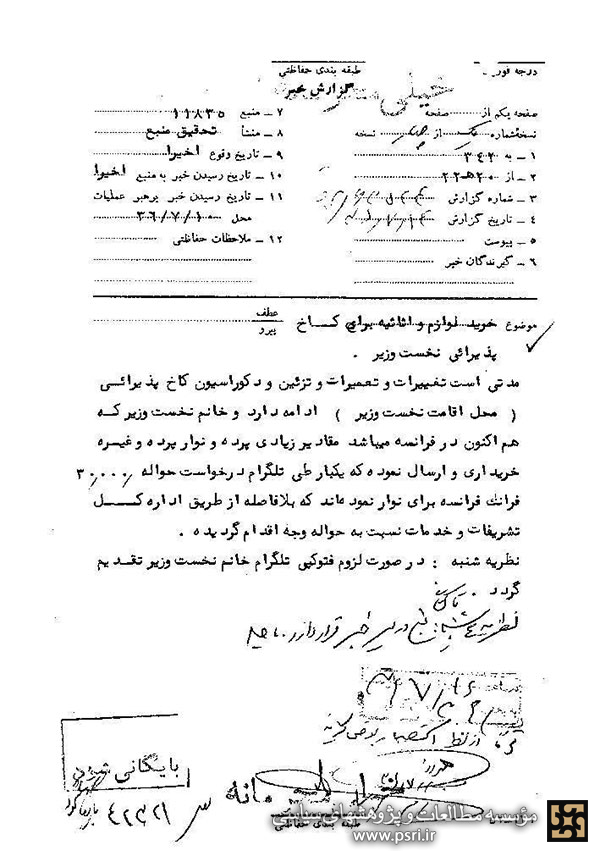 درجه فوریت
طبقه بندی حفاظتی
خیلی محرمانه
گزارش خبر
صفحه یکم از صفحه
نسخه شماره یک از چهار نسخه
۱ ـ به ۳۴۲
۲ ـ از ۲۰ هـ ۲۲
۳ ـ شماره گزارش
۴ ـ تاریخ گزارش
۵ ـ پیوست
۶ ـ گیرندگان خبر
۷ ـ منبع ۱۱۸۳۵
۸ ـ منشأ تحقیق منبع
۹ ـ تاریخ وقوع اخیرا
۱۰ ـ تاریخ رسیدن خبر به منبع اخیرا
۱۱ ـ تاریخ رسیدن خبر برهبر عملیات
محل ۳۶/۷/۱۰
۱۲ ـ ملاحظات حفاظتی
موضوع خرید لوازم و اثاثیه برای کاخ
پذیرائی نخست وزیر .
عطف
پیرو
مدتی است تغییرات و تعمیرات و تزئین و دکوراسیون کاخ پذیرائی
( محل اقامت نخست وزیر ) ادامه دارد و خانم نخست وزیر که
هم اکنون در فرانسه میباشد مقادیر زیادی پرده و نوار پرده و غیره
خریداری و ارسال نموده که یکبار طی تلگرام درخواست حواله ۳۰,۰۰۰
فرانک فرانسه برای نوار نموده‌اند که بلافاصله از طریق اداره کل
تشریفات و خدمات نسبت به حواله وجه اقدام گردیده .
نظریه شنبه : در صورت لزوم فتوکپی تلگرام خانم نخست وزیر تقدیم
گردد .
نظریه یکشنبه : شنبه در مسیر خبر قرار دارد
بایگانی شود
۴۲۳۲۱
طبقه بندی حفاظتی
مؤسسه مطالعات و پژوهشهای سیاسی
www.psri.ir